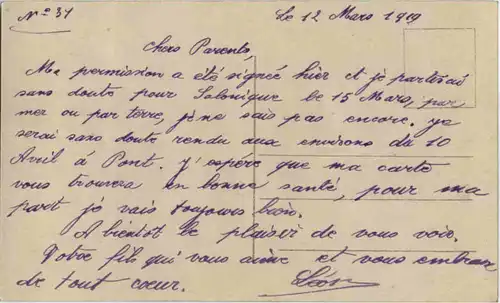 N° 31
Le 12 Mars 1919
Chers Parents,
Ma permission a été signée hier et je partirai
sans doute pour Salonique le 15 Mars, par
mer ou par terre, je ne sais pas encore. Je
serai sans doute rendu aux environs du 10
Avril à Pont. J'espére que ma carte
vous trouvera en bonne santé, pour ma
part je vais toujours bien.
A bientôt le plaisir de vous voir.
Votre fils qui vous aime et vous embrasse
de tout coeur. Léon